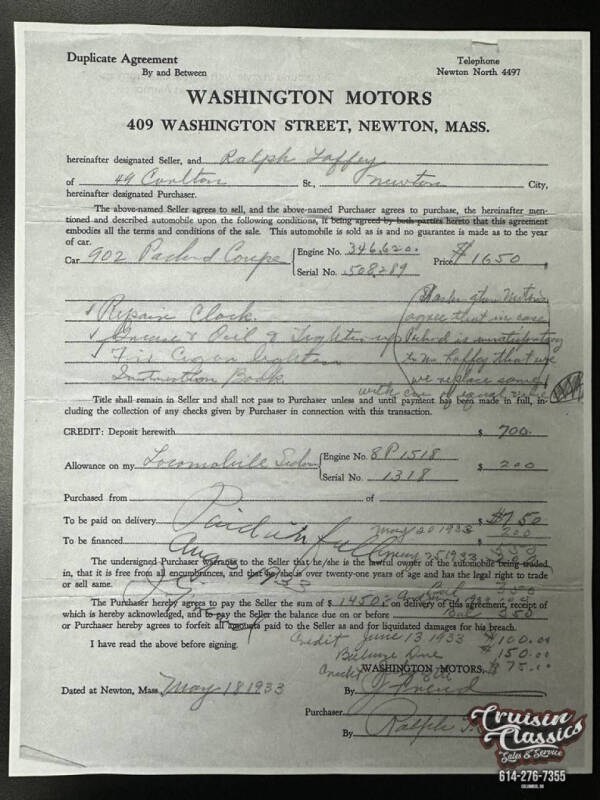 Duplicate Agreement
By and Between
Telephone
Newton North 4497
WASHINGTON MOTORS
409 WASHINGTON STREET, NEWTON, MASS.
hereinafter designated Seller, and Ralph Laffey
of 49 Carlton St., Newton City,
hereinafter designated Purchaser.
The above-named Seller agrees to sell, and the above-named Purchaser agrees to purchase, the hereinafter men-
tioned and described automobile upon the following conditions, it being agreed by both parties hereto that this agreement
embodies all the terms and conditions of the sale. This automobile is sold as is and no guarantee is made as to the year
of car.
Car 902 Packard Coupe Engine No. 346,620. Price $1650
Serial No. 508,289
Repair Clock.
Grease & Oil & Tighten up
Fix Cigar lighter
Instruction Book.
Washington Motors
agree that in case
Packard is unsatisfactory
to Mr Laffey that we
we replace same
with car of equal value
Title shall remain in Seller and shall not pass to Purchaser unless and until payment has been made in full, in-
cluding the collection of any checks given by Purchaser in connection with this transaction.
CREDIT: Deposit herewith $ 700.
Allowance on my Locomobile Sedan Engine No. 8P1518 $ 200
Serial No. 1318
Purchased from of
To be paid on delivery $ 750
To be financed May 20 1933 200
Paid in full
Aug 1933
May 25 1933
The undersigned Purchaser warrants to the Seller that he/she is the lawful owner of the automobile being traded
in, that it is free from all encumbrances, and that he/she is over twenty-one years of age and has the legal right to trade
or sell same.
The Purchaser hereby agrees to pay the Seller the sum of $ 1450. on delivery of this agreement, receipt of
which is hereby acknowledged, and to pay the Seller the balance due on or before
or Purchaser hereby agrees to forfeit all amounts paid to the Seller as and for liquidated damages for his breach.
I have read the above before signing.
Credit June 13 1933 $100.00
Balance Due $150.00
Credit $75.00
WASHINGTON MOTORS,
Dated at Newton, Mass. May 18 1933 By
Purchaser
By Ralph
Cruisin Classics
Sales & Service
614-276-7355
COLUMBUS, OH